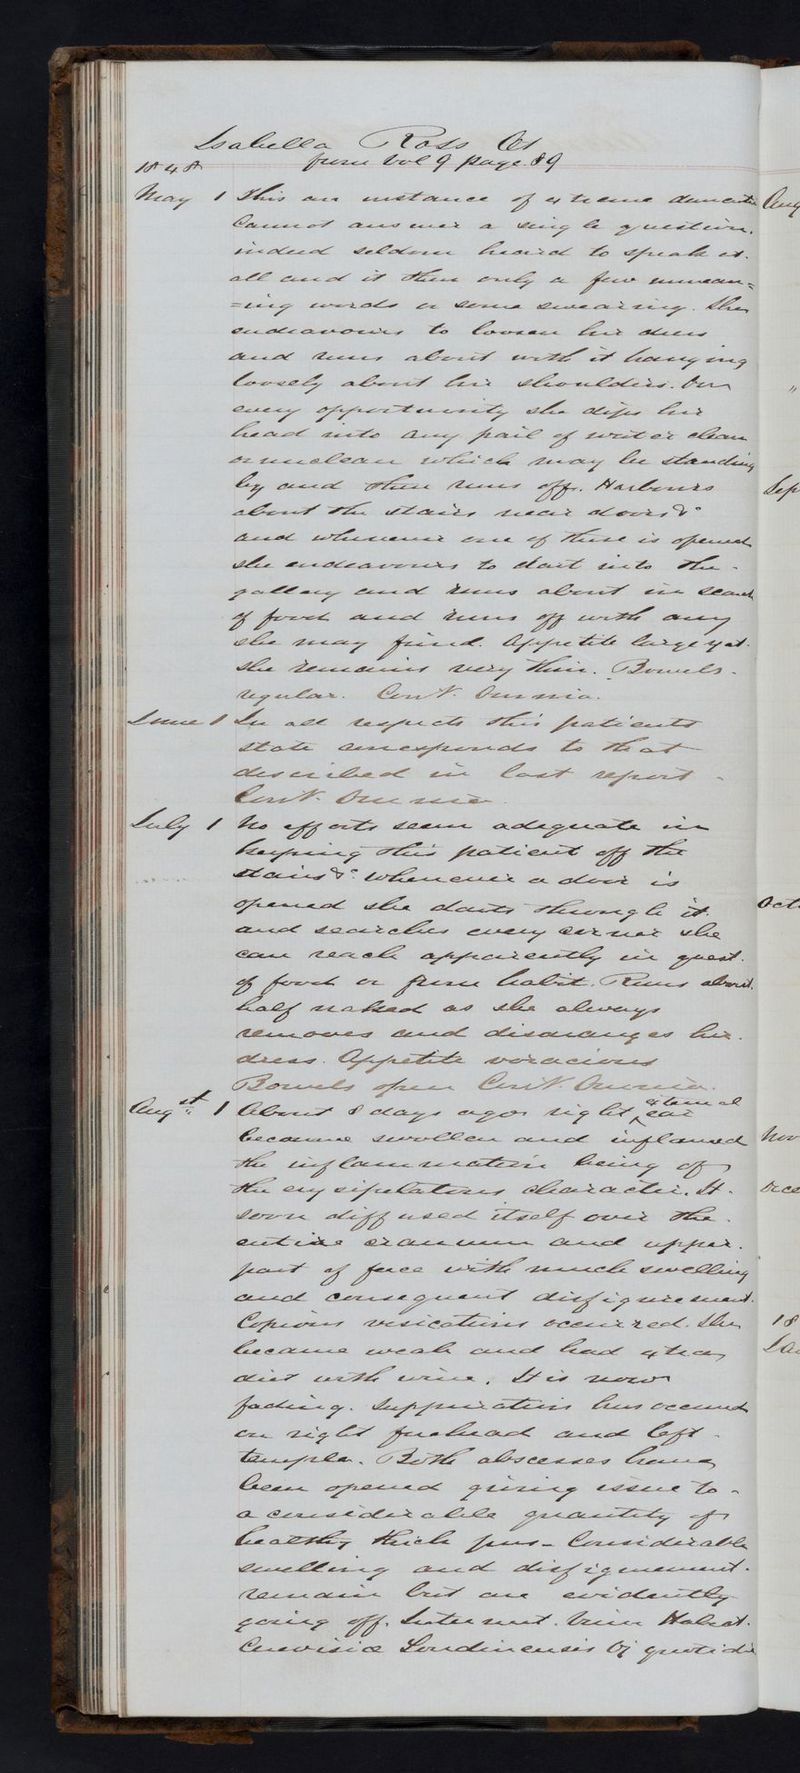 Isabella Ross
from Vol 9 page 89
1848
May 1 This an instance of extreme dementia
Cannot answer a single question,
indeed seldom heard to speak at.
all and it then only a few unmean=
=ing words or some swearing. She
endeavours to loosen her dress
and runs about with it hanging
loosely about her shoulders. On
every opportunity she dips her
head into any pail of water clean
or unclean which may be standing
by and then runs off. Harbours
about the stairs near doors &c
and whenever one of these is opened
she endeavours to dart into the
gallery and runs about in search
of food and runs off with any
she may find. Appetite large yet.
she remains very thin. Bowels.
regular. Cont. Omnia.
June 1 In all respects this patients
state corresponds to that
described in last report
Cont. Omnia
July 1 No efforts seem adequate in
keeping this patient off the
stairs &c. whenever a door is
opened she darts through it
and searches every corner she
can reach apparently in quest.
of food or from habit. Runs about.
half naked as she always
removes and disarranges her.
dress. Appetite voracious
Bowels open Cont. Omnia.
Augst 1 About 8 days ago right external ear
became swollen and inflamed
the inflammation being of
the erysipelatous character. It.
soon diffused itself over the.
entire cranium and upper.
part of face with much swelling
and consequent disfigurement.
Copious vesications occurred. She
became weak and had extra
diet with wine. It is now
fading. Suppuration has occurred
on right forehead and left.
temple. Both abscesses have
been opened giving issue to
a considerable quantity of
healthy thick pus - Considerable
swelling and disfigurement.
remain but are evidently
going off. Intermit. Vinum Habeat.
Cerevisiæ Londinensis quotidie
Aug
"
Sep
Oct
Nov
Dec
18
Jan